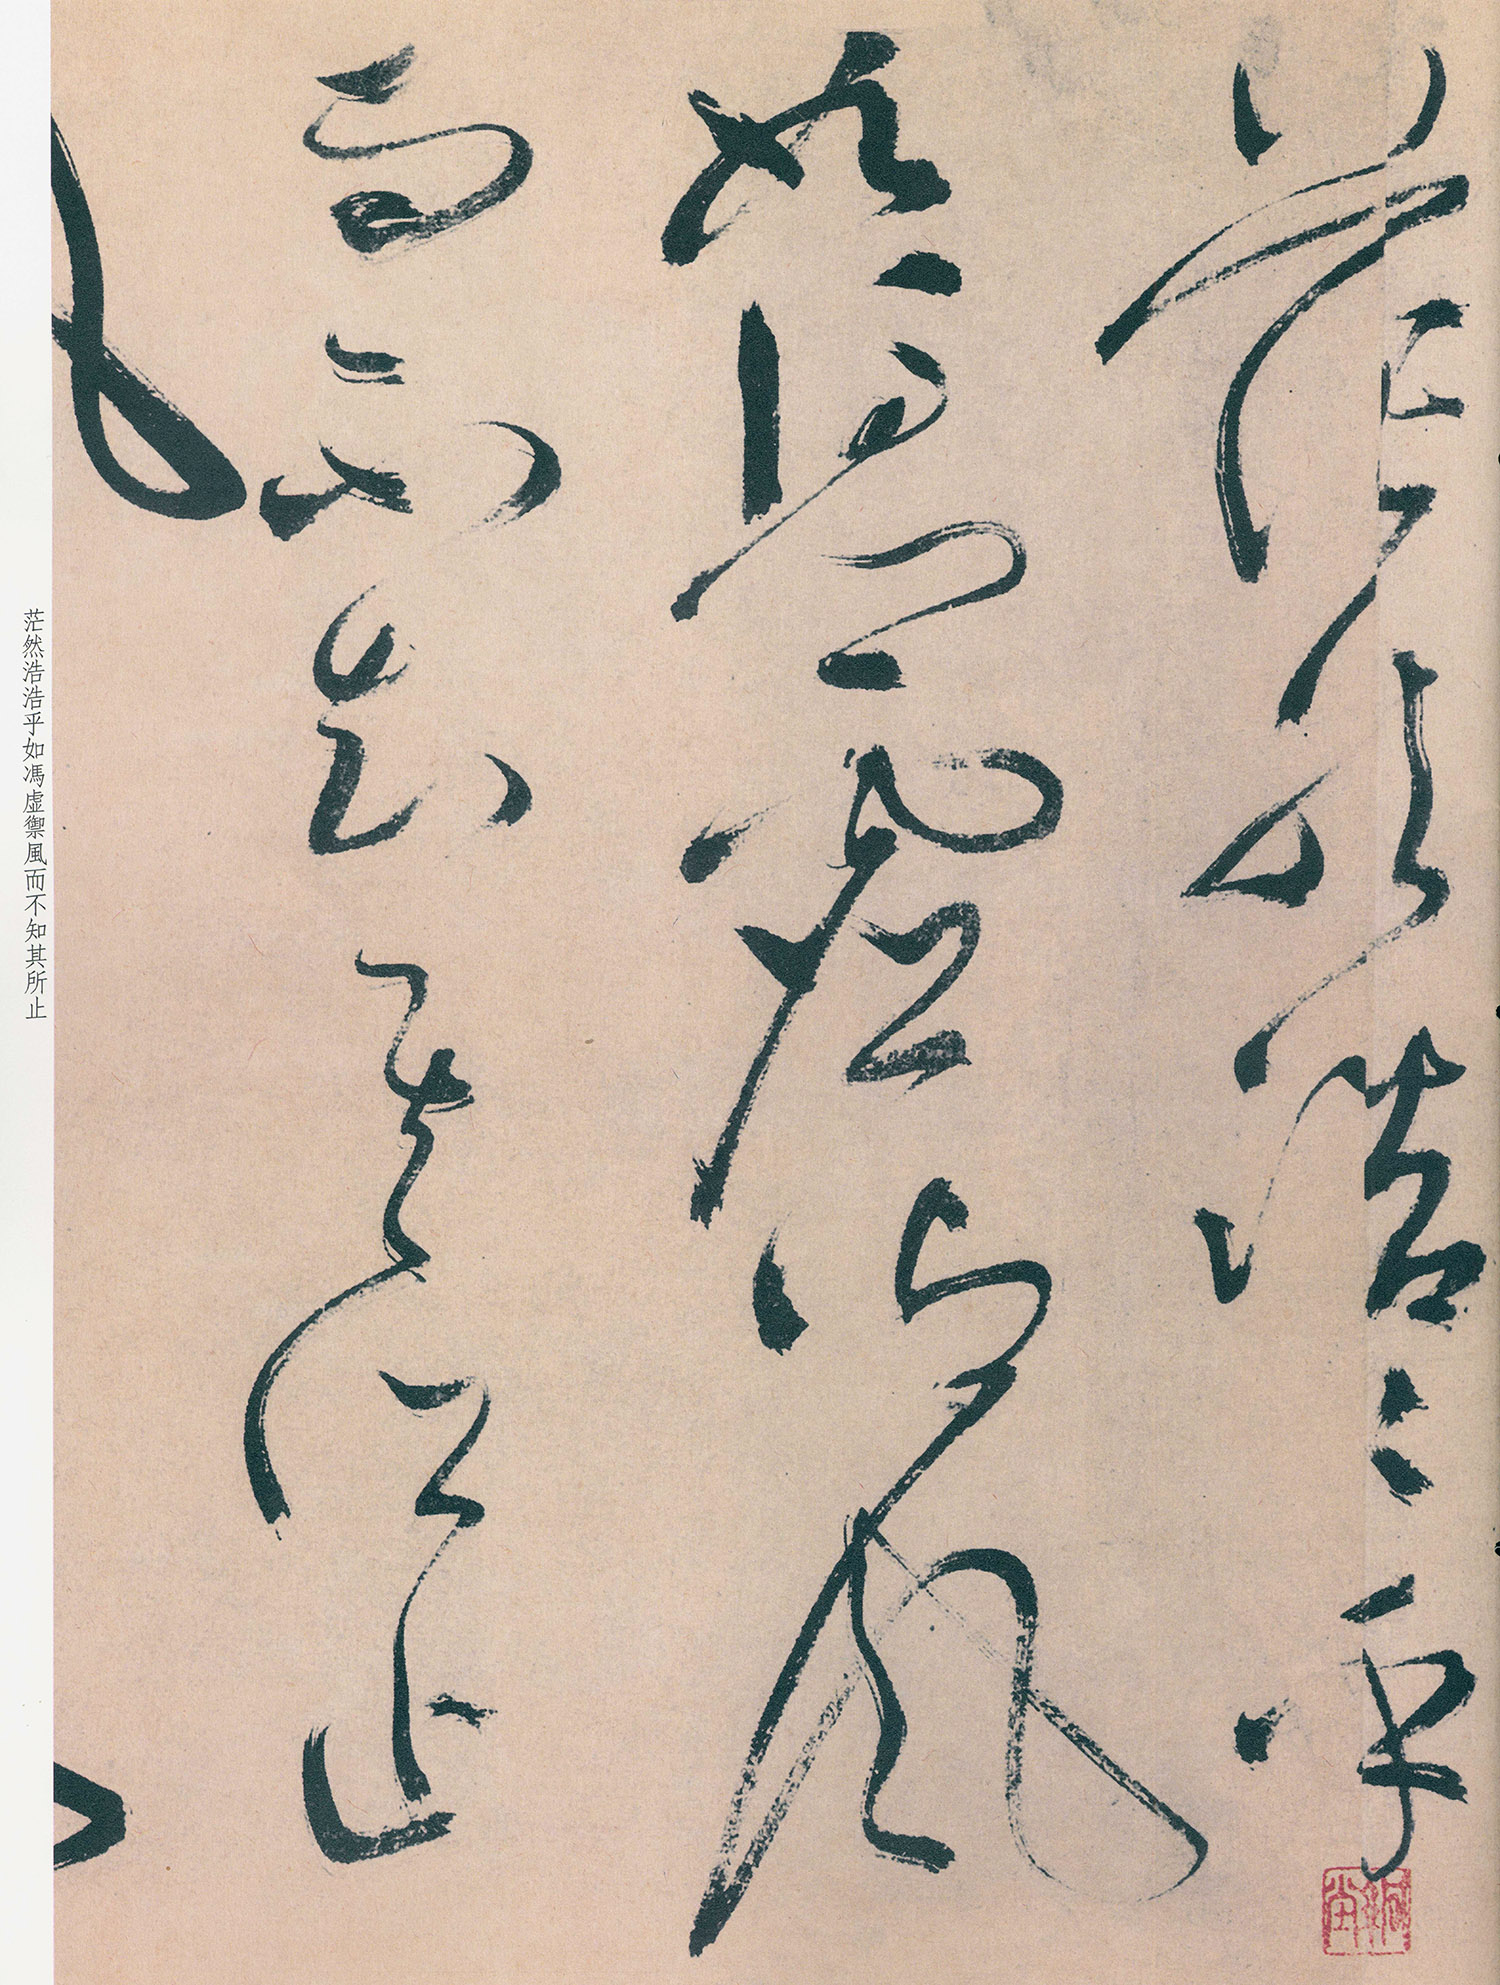 茫然浩〻乎
如馮虛御風
而不知其所止
茫然浩浩乎如馮虛禦風而不知其所止